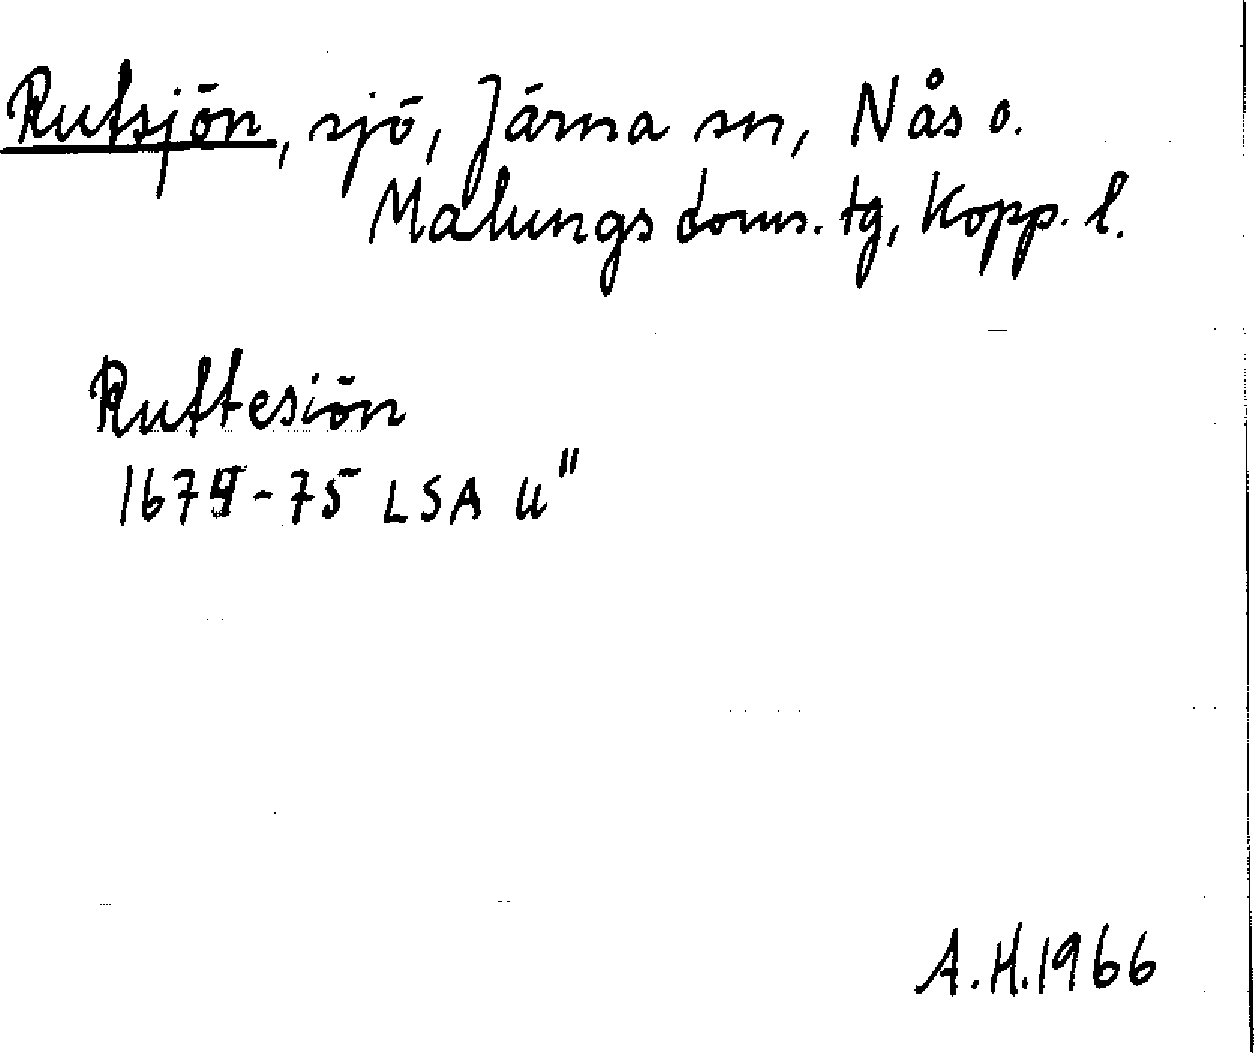 Rutsjön, sjö, Järna sn, Nås o.
Malungs doms. tg, Kopp. l.
Ruttesiön
1674-75 LSA U"
A.H.1966